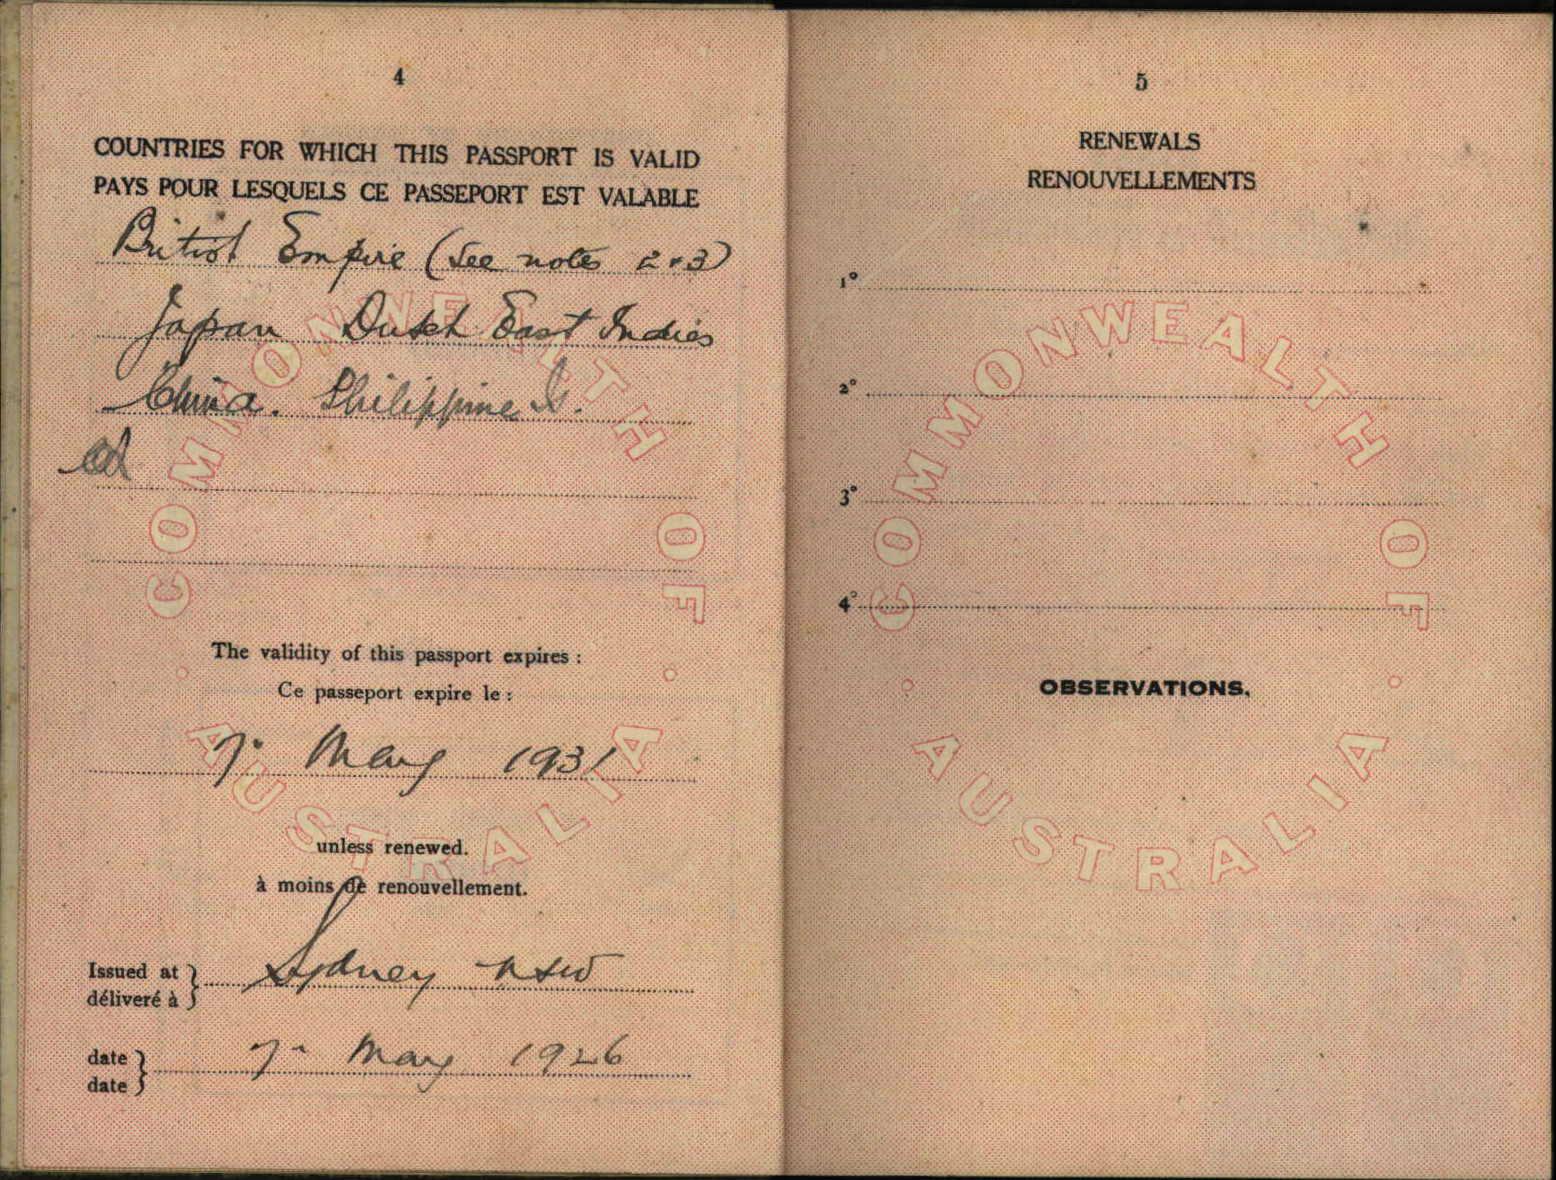 4
COUNTRIES FOR WHICH THIS PASSPORT IS VALID
PAYS POUR LESQUELS CE PASSEPORT EST VALABLE
British Empire (See notes 2 & 3)
Japan Dutch East Indies
China. Philippine Is.
The validity of this passport expires :
Ce passeport expire le :
7. May 1931
unless renewed.
à moins de renouvellement.
Issued at
déliveré à
Sydney NSW
date
date
7 - May 1926
COMMONWEALTH OF
AUSTRALIA
5
RENEWALS
RENOUVELLEMENTS
1°
2°
3°
4°
OBSERVATIONS.
COMMONWEALTH OF
AUSTRALIA